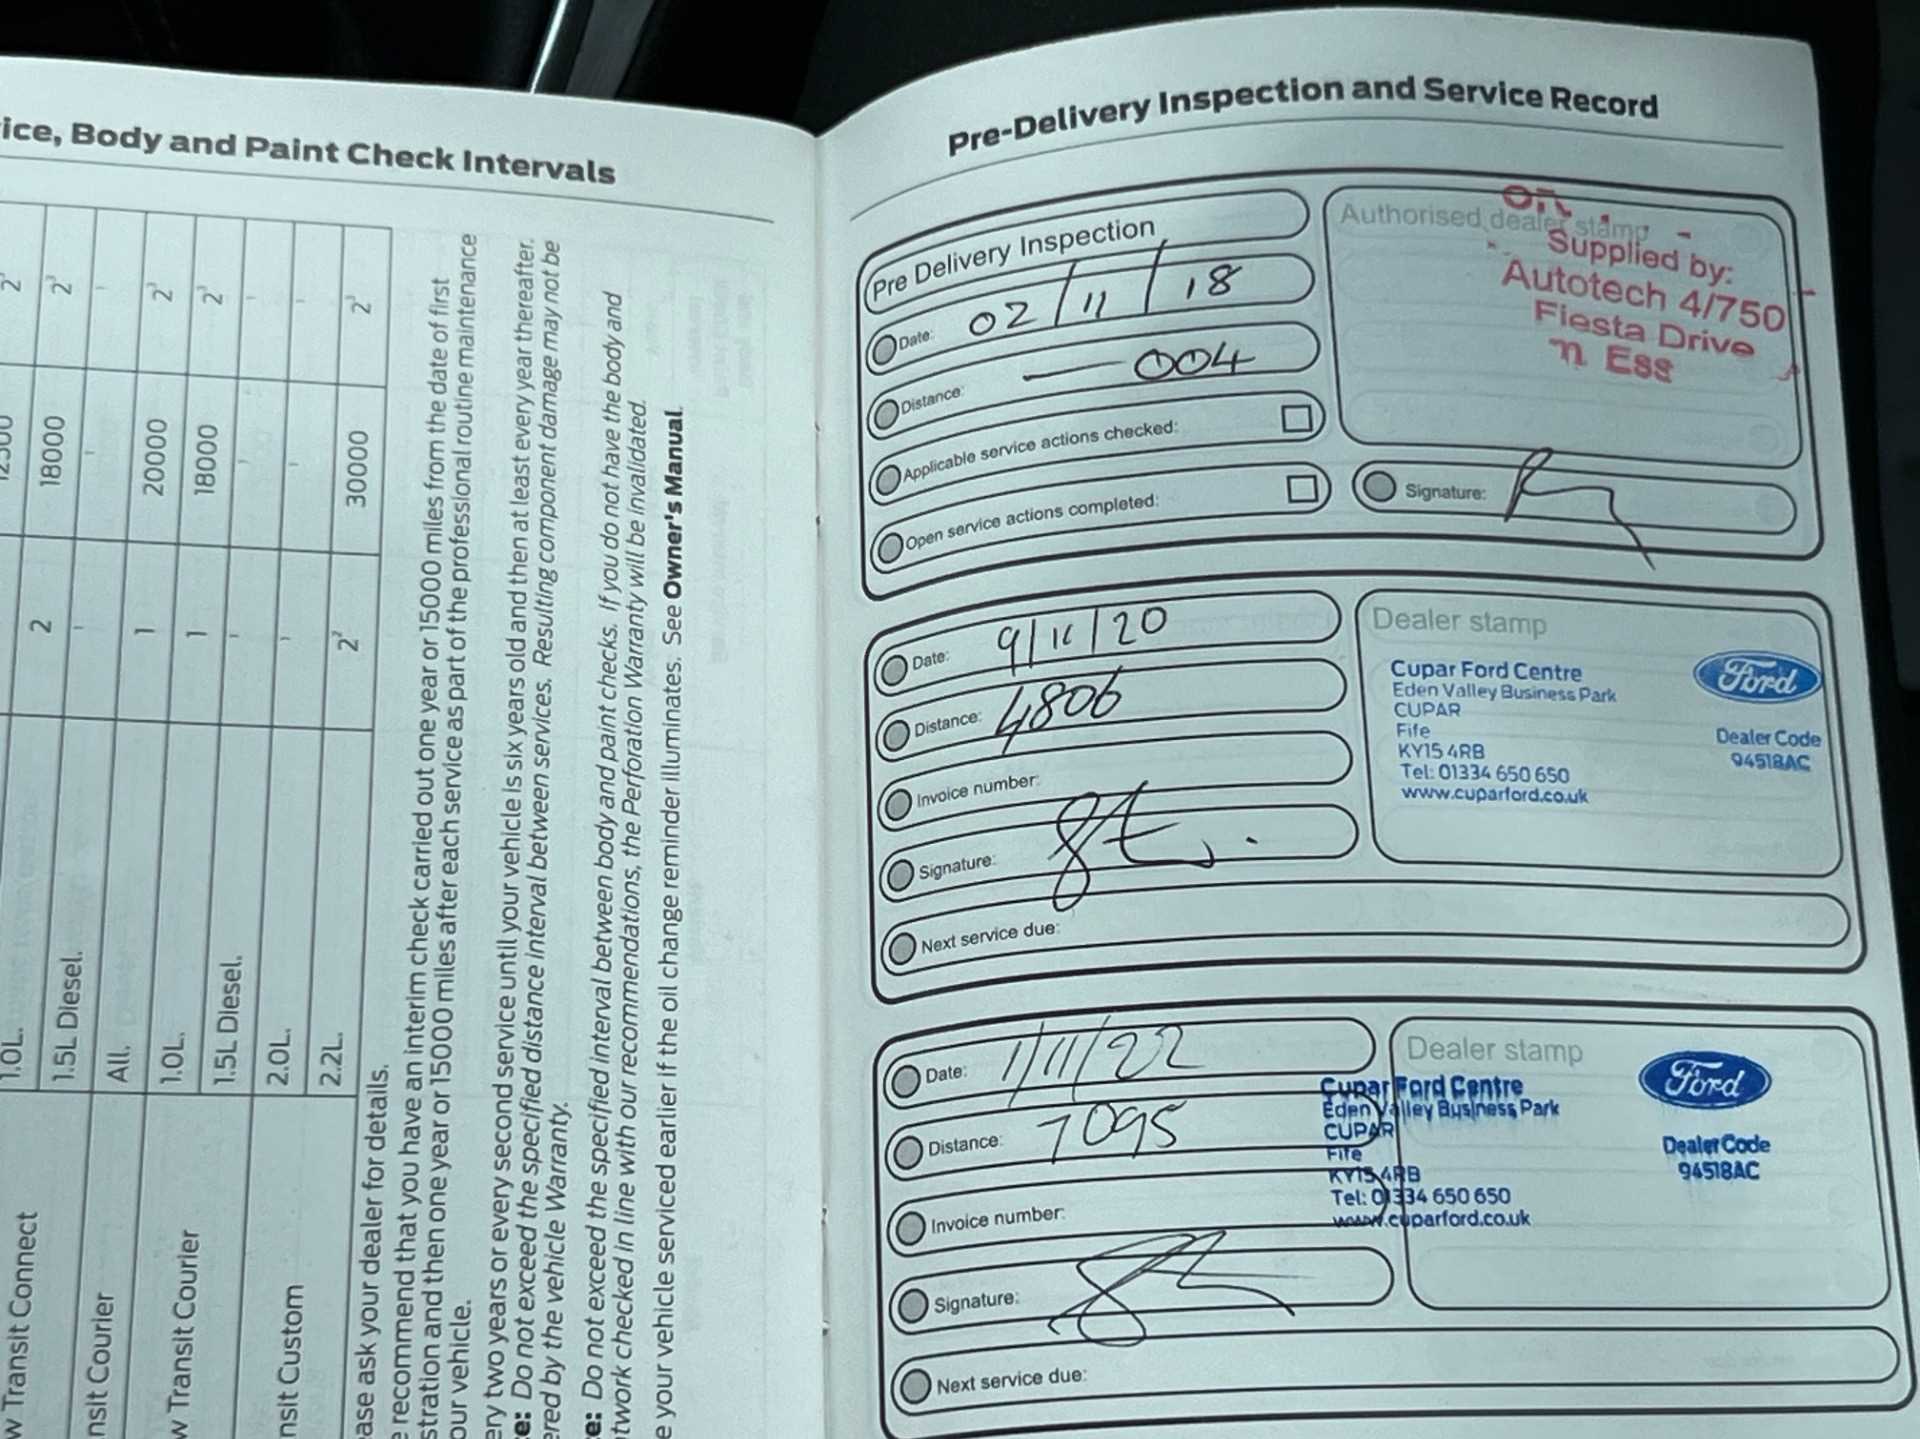 ice, Body and Paint Check Intervals
w Transit Connect
1.0L.
2
2³
1.5L Diesel.
2
18000
2³
nsit Courier
All.
-
-
-
w Transit Courier
1.0L.
1
20000
2³
1.5L Diesel.
1
18000
2³
nsit Custom
2.0L.
-
-
-
2.2L.
2²
30000
2³
ase ask your dealer for details.
e recommend that you have an interim check carried out one year or 15000 miles from the date of first
stration and then one year or 15000 miles after each service as part of the professional routine maintenance
our vehicle.
ery two years or every second service until your vehicle is six years old and then at least every year thereafter.
te: Do not exceed the specified distance interval between services. Resulting component damage may not be
ered by the vehicle Warranty.
te: Do not exceed the specified interval between body and paint checks. If you do not have the body and
twork checked in line with our recommendations, the Perforation Warranty will be invalidated.
e your vehicle serviced earlier if the oil change reminder illuminates. See Owner's Manual.
Pre-Delivery Inspection and Service Record
Pre Delivery Inspection
Date: 02/11/18
Distance: — 004
Applicable service actions checked:
Open service actions completed:
Authorised dealer stamp
Supplied by:
Autotech 4/750
Fiesta Drive
Ess
Signature:
Date: 9/11/20
Distance: 4806
Invoice number:
Signature:
Next service due:
Dealer stamp
Cupar Ford Centre
Eden Valley Business Park
CUPAR
Fife
KY15 4RB
Tel: 01334 650 650
www.cuparford.co.uk
Ford
Dealer Code
94518AC
Date: 1/11/22
Distance: 7095
Invoice number:
Signature:
Next service due:
Dealer stamp
Cupar Ford Centre
Eden Valley Business Park
CUPAR
Fife
KY15 4RB
Tel: 01334 650 650
www.cuparford.co.uk
Ford
Dealer Code
94518AC